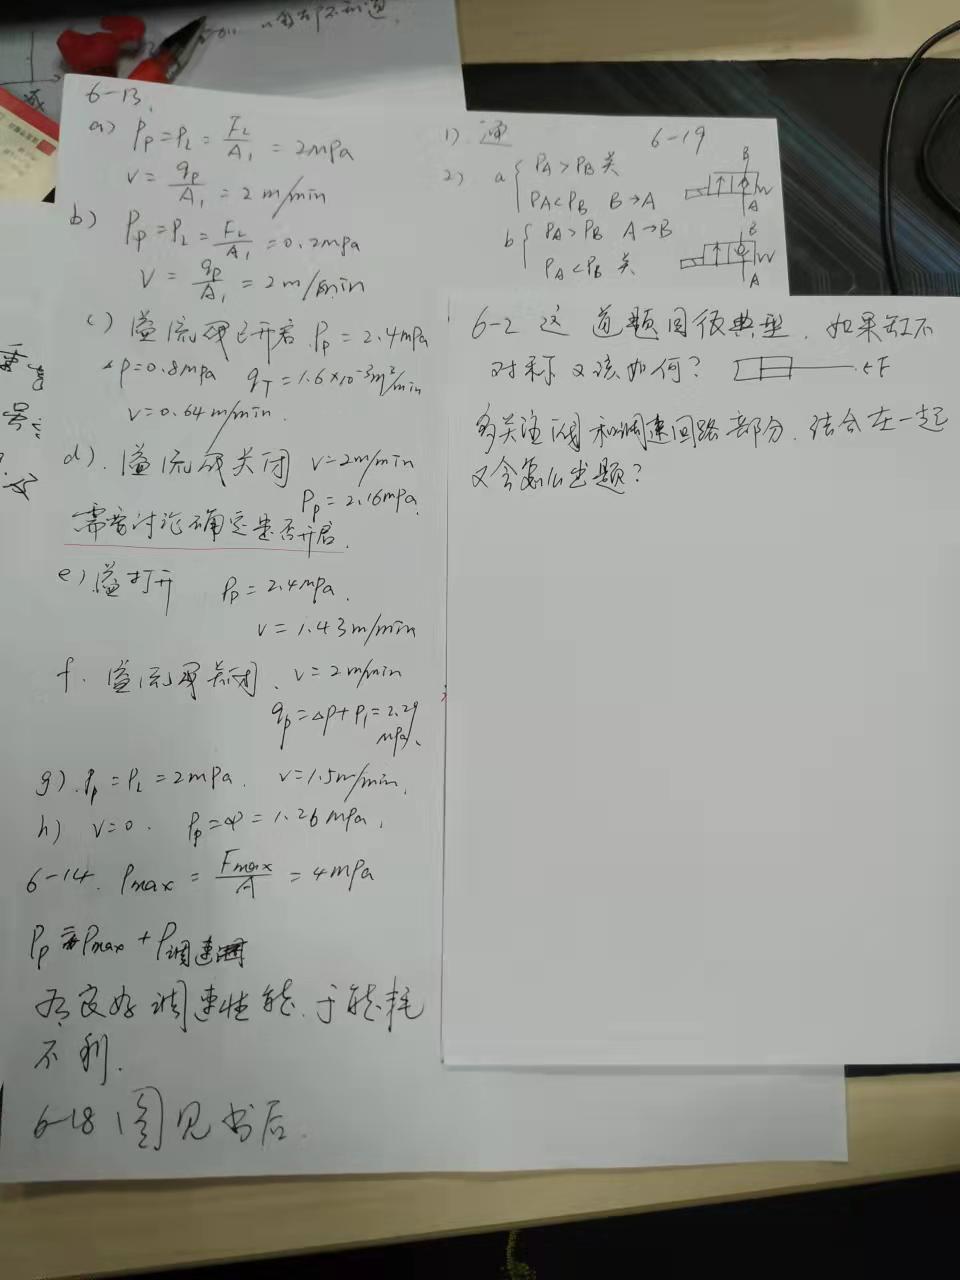 6-13.
a) Pp = PL = FL/A1 = 2mpa
v = qp/A1 = 2 m/min
b) Pp = PL = FL/A1 = 0.2mpa
V = qp/A1 = 2m/min
c) 溢流阀已开启 Pp = 2.4mpa
△p=0.8mpa qT = 1.6×10⁻³m³/min
v=0.64m/min.
d). 溢流阀关闭 v=2m/min
Pp = 2.16mpa
需要讨论确定是否开启.
e). 溢打开 Pp = 2.4mpa.
v = 1.43m/min
f. 溢流阀关闭、v = 2m/min
qp = △p + P1 = 2.29
mpa、
g). Pp = PL = 2mpa. v=1.5m/min,
h) v=0. Pp = △P = 1.26mpa,
6-14. Pmax = Fmax/A = 4mpa
Pp = Pmax + P调速阀
有良好调速性能、于能耗
不利.
6-18 图见书后.
1). 通 6-19
2) a { PA > PB 关
PA < PB B→A
B
A
b { PA > PB A→B
PA < PB 关
B
A
6-2 这道题图很典型. 如果缸不
对称又该如何? ←F
多关注阀和调速回路部分、结合在一起
又会怎么出题?